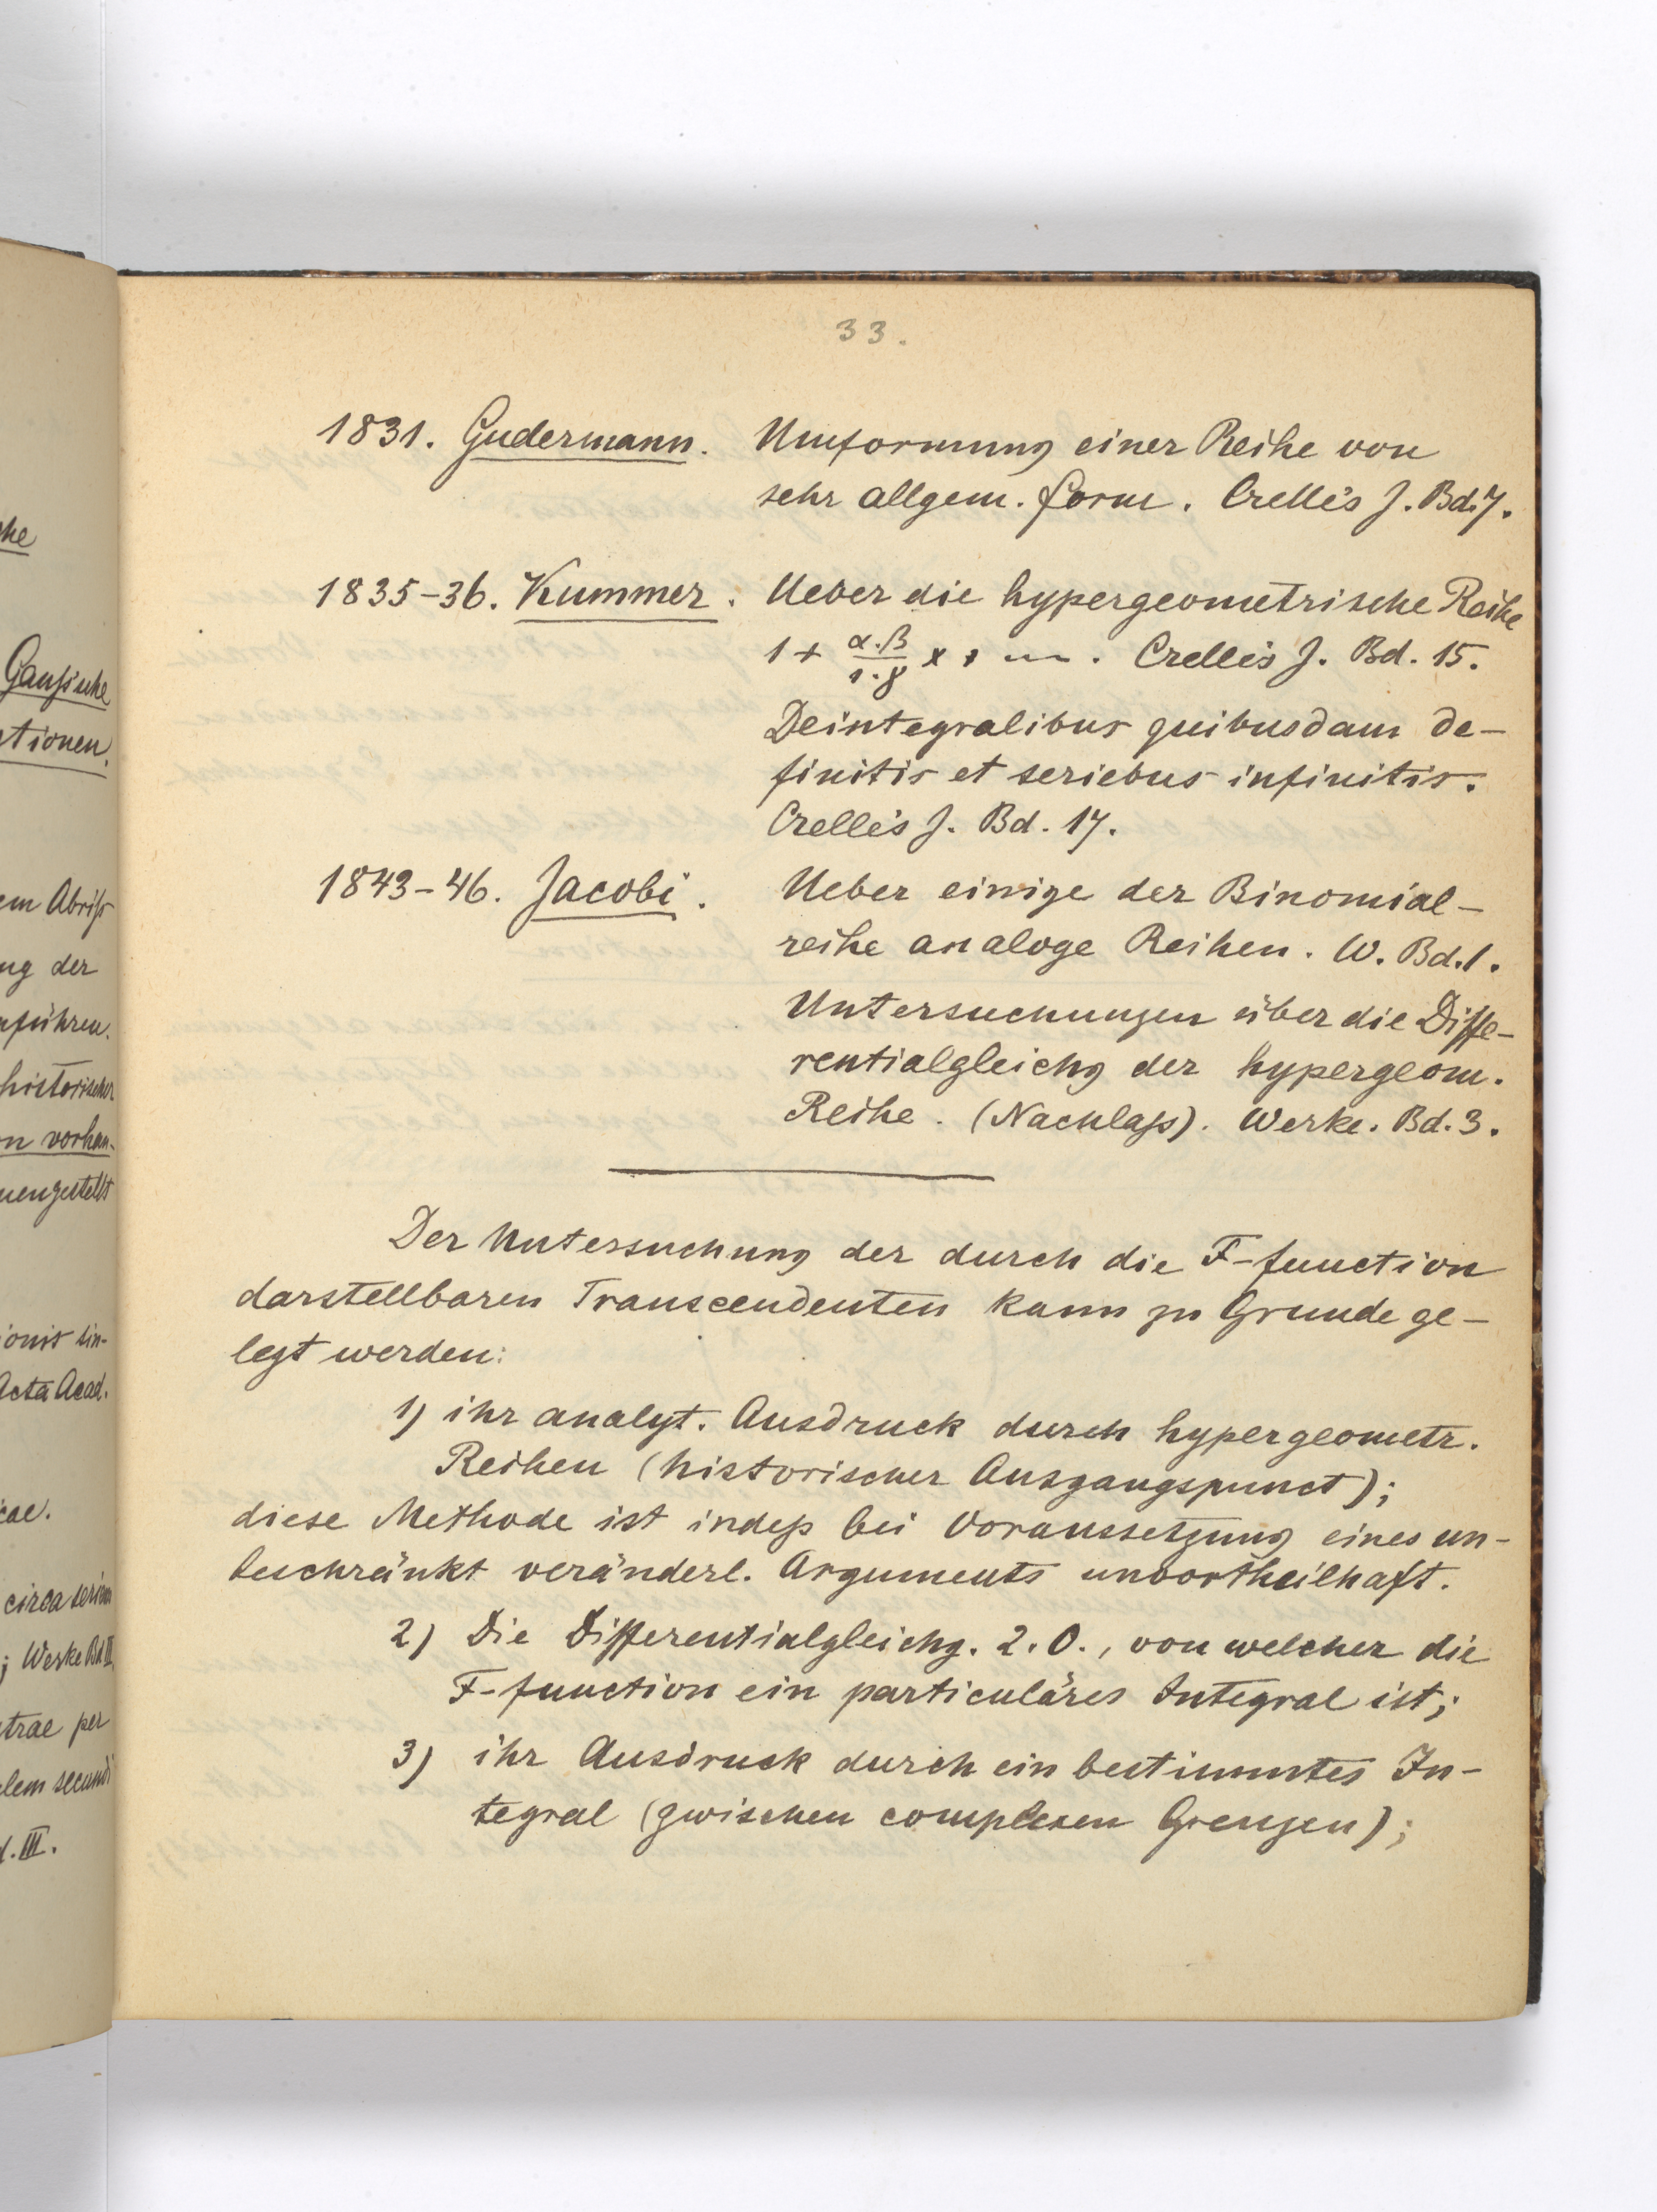 he
Gaußsche
tionen.
em Abriß
ng der
führen.
historischer
n vorhan-
mengestellt
ionis sin-
Acta Acad.
cae.
circa seriem
; Werke Bd III
trae per
lem secundi
d. III.
33.
1831. Gudermann. Umformung einer Reihe von
sehr allgem. Form. Crelle's J. Bd. 7.
1835-36. Kummer. Ueber die hypergeometrische Reihe
1 + α.β/1.γ x + ... . Crelle's J. Bd. 15.
De integralibus quibusdam de-
finitis et seriebus infinitis.
Crelle's J. Bd. 17.
1843-46. Jacobi. Ueber einige der Binomial-
reihe analoge Reihen. W. Bd. 1.
Untersuchungen über die Diffe-
rentialgleichg der hypergeom.
Reihe. (Nachlaß). Werke. Bd. 3.
Der Untersuchung der durch die F-function
darstellbaren Transcendenten kann zu Grunde ge-
legt werden:
1) ihr analyt. Ausdruck durch hypergeometr.
Reihen (historischer Ausgangspunct);
diese Methode ist indeß bei Voraussetzung eines un-
beschränkt veränderl. Arguments unvortheilhaft.
2) Die Differentialgleichg. 2. O., von welcher die
F-function ein particuläres Integral ist;
3) ihr Ausdruck durch ein bestimmtes In-
tegral (zwischen complexen Grenzen);